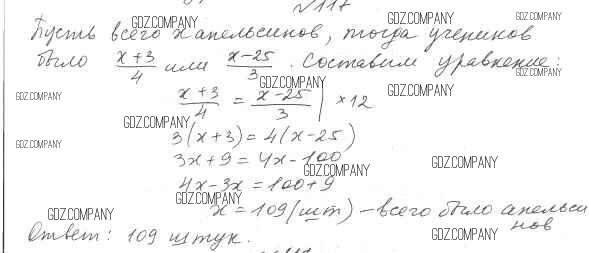 №117
Пусть всего x апельсинов, тогда учеников
было (x+3)/4 или (x-25)/3. Составим уравнение:
(x+3)/4 = (x-25)/3 | ×12
3(x+3)=4(x-25)
3x+9=4x-100
4x-3x=100+9
x=109(шт)-всего было апельси
нов
Ответ: 109 штук.
GDZ.COMPANY
GDZ.COMPANY
GDZ.COMPANY
GDZ.COMPANY
GDZ.COMPANY
GDZ.COMPANY
GDZ.COMPANY
GDZ.COMPANY
GDZ.COMPANY
GDZ.COMPANY
GDZ.COMPANY
GDZ.COMPANY
GDZ.COMPANY
GDZ.COMPANY